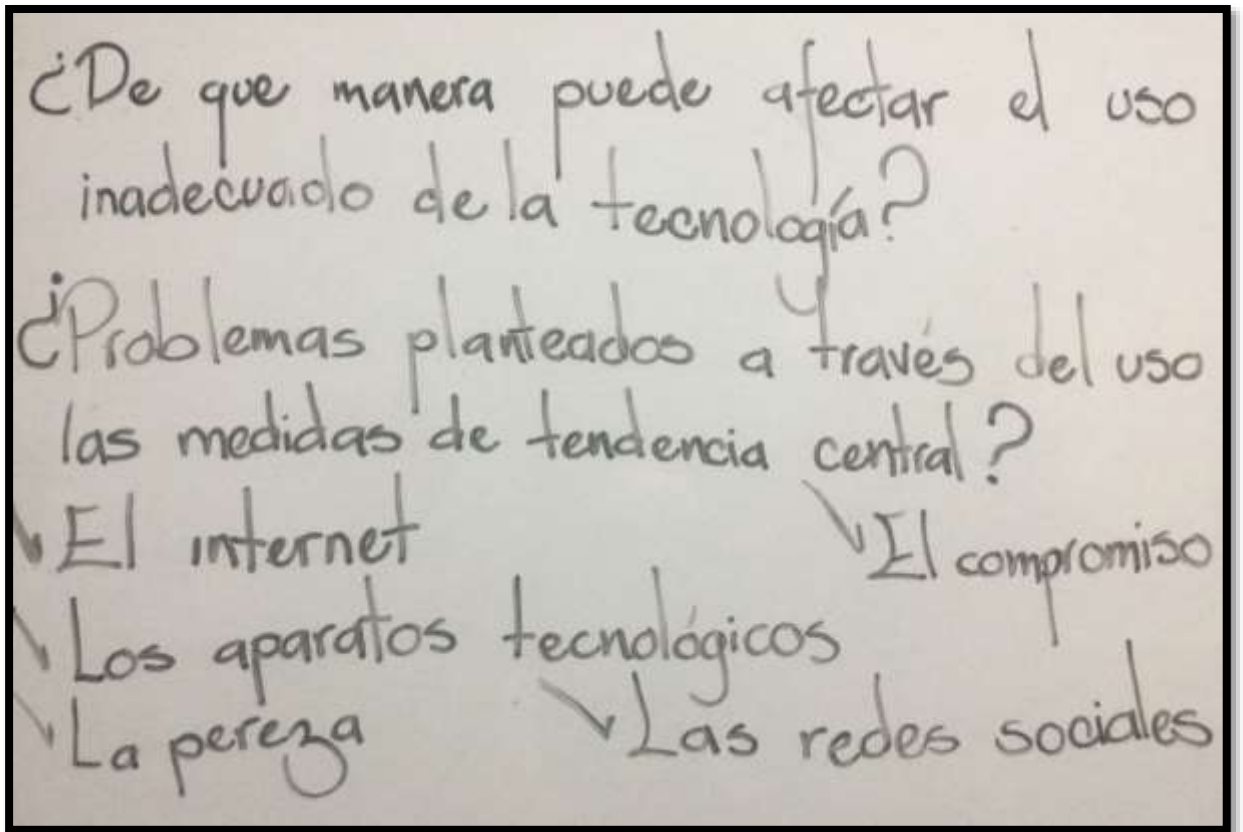 ¿De que manera puede afectar el uso
inadecuado de la tecnología?
¿Problemas planteados a través del uso
las medidas de tendencia central?
El internet
El compromiso
Los aparatos tecnológicos
La pereza
Las redes sociales